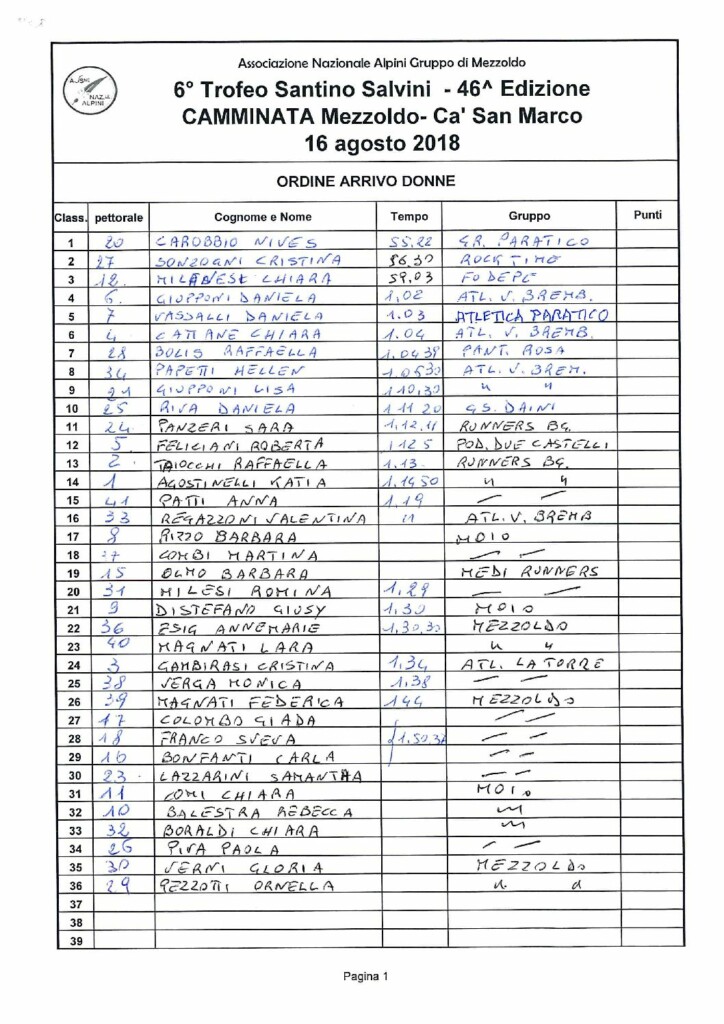 Associazione Nazionale Alpini Gruppo di Mezzoldo
6° Trofeo Santino Salvini - 46^ Edizione
CAMMINATA Mezzoldo- Ca' San Marco
16 agosto 2018
ORDINE ARRIVO DONNE
Class. pettorale Cognome e Nome Tempo Gruppo Punti
1 20 CAROBBIO NIVES 55.22 GR. PARATICO
2 27 SONZOGNI CRISTINA 56.30 ROCK TIME
3 12 MILANESE CHIARA 59.03
4 6 GIUPPONI DANIELA 1.02 ATL. V. BREMB.
5 7 VASSALLI DANIELA 1.03 ATLETICA PARATICO
6 4 CATTANE CHIARA 1.04 ATL. V. BREMB.
7 28 BOLIS RAFFAELLA 1.04 38 PANT. ROSA
8 34 PAPETTI HELLEN 1.05 30 ATL. V. BREM.
9 21 GIUPPONI LISA 1 10,30 " "
10 25 RIVA DANIELA 1 11 20 GS. DAINI
11 24 PANZERI SARA 1,12,11 RUNNERS BG.
12 5 FELICIANI ROBERTA 1 12 5 POD. DUE CASTELLI
13 2 TAIOCCHI RAFFAELLA 1.13. RUNNERS BG.
14 1 AGOSTINELLI KATIA 1,14 50 " "
15 41 PATTI ANNA 1,19 — —
16 33 REGAZZONI VALENTINA " ATL. V. BREMB
17 8 RIZZO BARBARA MOIO
18 37 COMBI MARTINA — —
19 15 OLMO BARBARA MEDI RUNNERS
20 31 MILESI ROMINA 1,29 — —
21 9 DISTEFANO GIUSY 1,30 MOIO
22 36 ESIG ANNEMARIE 1,30,30 MEZZOLDO
23 40 MAGNATI LARA " "
24 3 GAMBIRASI CRISTINA 1,34 ATL. LA TORRE
25 38 VERGA MONICA 1,38 — —
26 39 MAGNATI FEDERICA 144 MEZZOLDO
27 17 COLOMBO GIADA — —
28 18 FRANCO SVEVA 1.50.32 — —
29 16 BONFANTI CARLA — —
30 23 LAZZARINI SAMANTHA — —
31 11 COMI CHIARA MOIO
32 10 BALESTRA REBECCA "
33 32 BORALDI CHIARA "
34 26 PIVA PAOLA — —
35 30 VERNI GLORIA MEZZOLDO
36 29 PEZZOTTI ORNELLA " "
37
38
39
Pagina 1